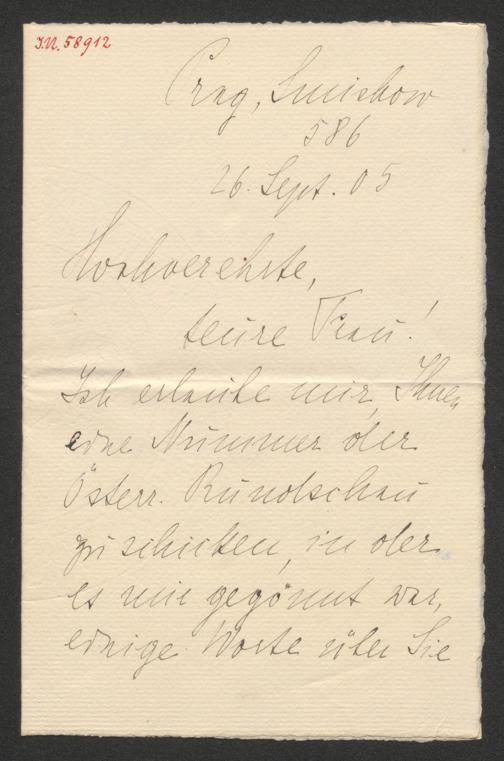 I.N. 58912
Prag, Smichow
586
26. Sept. 05
Hochverehrte,
teure Frau!
Ich erlaube mir, Ihnen
eine Nummer der
Österr. Rundschau
zu schicken, in der
es mir gegönnt war,
einige Worte über Sie